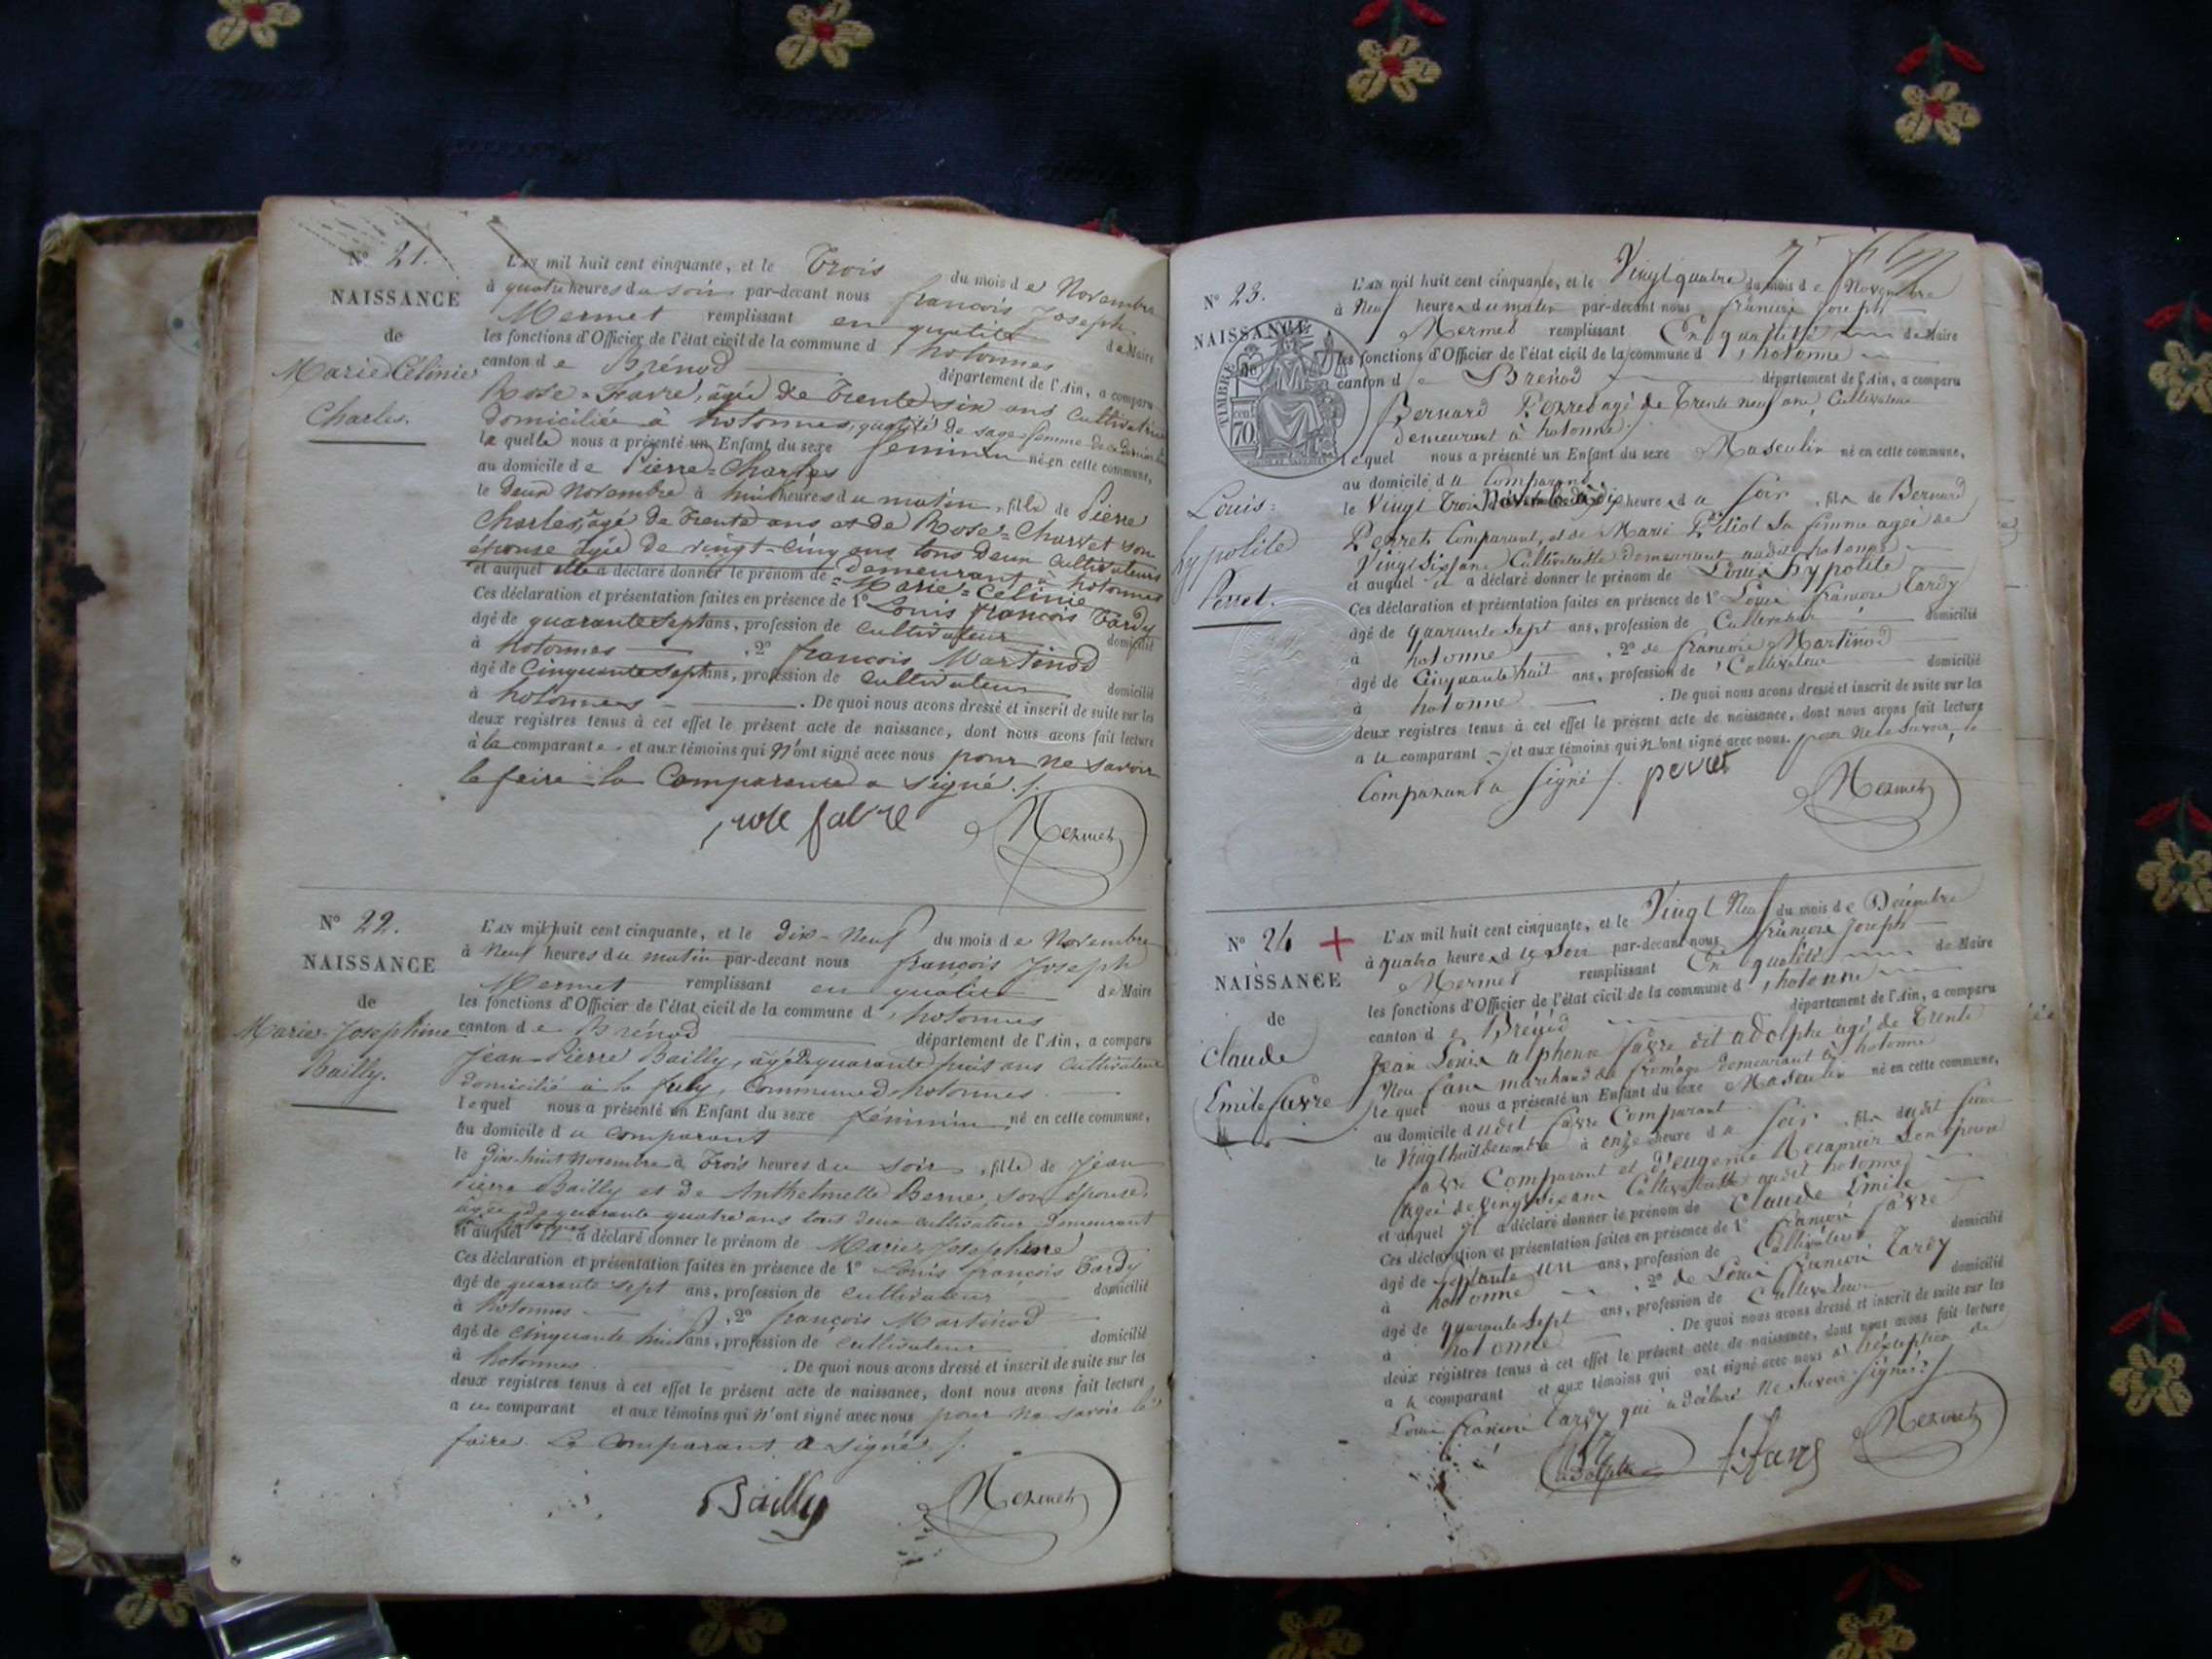 N° 21.
NAISSANCE
de
Marie Célinie
Charles.
L'AN mil huit cent cinquante, et le Trois du mois de Novembre
à quatre heures du soir par-devant nous françois Joseph
Mermet remplissant en qualité de Maire
les fonctions d'Officier de l'état civil de la commune d'hotonnes
canton de Brénod département de l'Ain, a comparu
Rose = Favre, âgée de Trente six ans Cultivatrice
domiciliée à hotonnes, qualité de sage-femme
la quelle nous a présenté un Enfant du sexe féminin né en cette commune,
au domicile de Pierre = Charles
le deux Novembre à huit heures du matin, fille de Pierre
Charles, âgé de Trente ans et de Rose = Charvet son
épouse âgée de vingt-cinq ans tous deux Cultivateurs
demeurant à hotonnes
et auquel elle a déclaré donner le prénom de = Marie = Célinie
Ces déclaration et présentation faites en présence de 1° Louis françois Tardy
âgé de quarante sept ans, profession de Cultivateur domicilié
à hotonnes , 2° françois Martinod
âgé de Cinquante sept ans, profession de Cultivateur domicilié
à hotonnes . De quoi nous avons dressé et inscrit de suite sur les
deux registres tenus à cet effet le présent acte de naissance, dont nous avons fait lecture
à la comparante et aux témoins qui n'ont signé avec nous pour ne savoir
le faire la Comparante a signé ./.
rose favre Mermet
N° 22.
NAISSANCE
de
Marie-Josephine
Bailly.
L'AN mil huit cent cinquante, et le dix-Neuf du mois de Novembre
à Neuf heures du matin par-devant nous françois Joseph
Mermet remplissant en qualité de Maire
les fonctions d'Officier de l'état civil de la commune d'hotonnes
canton de Brénod département de l'Ain, a comparu
Jean-Pierre Bailly, âgé de quarante huit ans Cultivateur
domicilié à la , Commune d'hotonnes.
lequel nous a présenté un Enfant du sexe féminin né en cette commune,
au domicile du comparant
le dix-huit Novembre à Trois heures du soir, fille de Jean
Pierre Bailly et de Anthelmette Berne, son épouse,
âgée de quarante quatre ans tous deux cultivateur demeurant
à hotonnes
et auquel il a déclaré donner le prénom de Marie-Josephine
Ces déclaration et présentation faites en présence de 1° Louis françois Tardy
âgé de quarante sept ans, profession de cultivateur domicilié
à hotonnes , 2° françois Martinod
âgé de cinquante huit ans, profession de cultivateur domicilié
à hotonnes. . De quoi nous avons dressé et inscrit de suite sur les
deux registres tenus à cet effet le présent acte de naissance, dont nous avons fait lecture
a u comparant et aux témoins qui n'ont signé avec nous pour ne savoir le
faire. Le Comparant a signé ./.
Bailly Mermet
N° 23.
NAISSANCE
de
TIMBRE
70
Louis =
hypolite
Perret.
L'AN mil huit cent cinquante, et le Vingt quatre du mois de Novembre
à Neuf heures du matin par-devant nous françois Joseph
Mermet remplissant En qualité de Maire
les fonctions d'Officier de l'état civil de la commune d'hotonne
canton de Brénod département de l'Ain, a comparu
Bernard Perret agé de Trente neuf ans, Cultivateur
demeurant à hotonne.
lequel nous a présenté un Enfant du sexe Masculin né en cette commune,
au domicile du Comparant
le Vingt Trois Novembre à dix heures du soir, fils de Bernard
Perret Comparant, et de Marie Pitiot sa femme agée de
Vingt six ans Cultivatrice demeurant audit hotonne
et auquel il a déclaré donner le prénom de Louis hypolite
Ces déclaration et présentation faites en présence de 1° Louis françois Tardy
âgé de quarante sept ans, profession de Cultivateur domicilié
à hotonne , 2° de françois Martinod
âgé de Cinquante huit ans, profession de Cultivateur domicilié
à hotonne . De quoi nous avons dressé et inscrit de suite sur les
deux registres tenus à cet effet le présent acte de naissance, dont nous avons fait lecture
a u comparant et aux témoins qui n'ont signé avec nous. pour ne le savoir, le
Comparant a signé ./. perret
Mermet
N° 24 +
NAISSANCE
de
Claude
Emile favre
L'AN mil huit cent cinquante, et le Vingt Neuf du mois de Décembre
à quatre heures du soir par-devant nous françois Joseph
Mermet remplissant En qualité de Maire
les fonctions d'Officier de l'état civil de la commune d'hotonne
canton de Brénod département de l'Ain, a comparu
Jean Louis alphonse favre dit adolphe agé de Trente
Neuf ans marchand de fromage demeurant à hotonne
lequel nous a présenté un Enfant du sexe Masculin né en cette commune,
au domicile dudit favre Comparant
le Vingt huit Décembre à onze heure du soir, fils dudit Jean
favre Comparant et d'eugenie Recamier son épouse
agée de vingt six ans Cultivatrice audit hotonne
et auquel il a déclaré donner le prénom de Claude Emile
Ces déclaration et présentation faites en présence de 1° françois favre
âgé de septante un ans, profession de Cultivateur domicilié
à hotonne , 2° de Louis françois Tardy
âgé de quarante sept ans, profession de Cultivateur domicilié
à hotonne . De quoi nous avons dressé et inscrit de suite sur les
deux registres tenus à cet effet le présent acte de naissance, dont nous avons fait lecture
a u comparant et aux témoins qui ont signé avec nous à l'exception de
Louis françois Tardy qui a déclaré ne savoir signer ./.
adolphe f favre Mermet